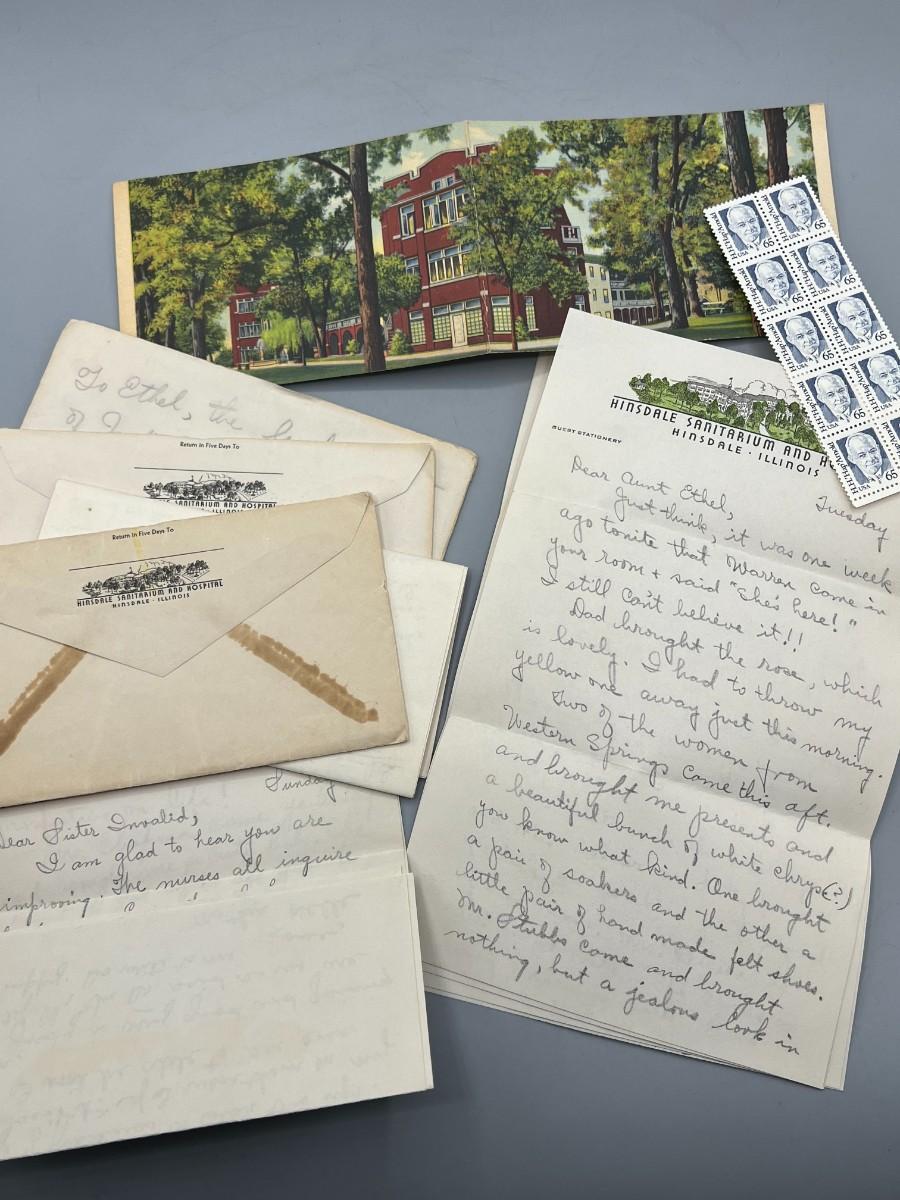 H.H.'Hap'Arnold
USA
65
H.H.'Hap'Arnold
USA
65
H.H.'Hap'Arnold
USA
65
H.H.'Hap'Arnold
USA
65
H.H.'Hap'Arnold
USA
65
H.H.'Hap'Arnold
USA
65
H.H.'Hap'Arnold
USA
65
H.H.'Hap'Arnold
USA
H.H.'Hap'Arnold
USA
65
To Ethel, the
of
Return in Five Days To
HINSDALE SANITARIUM AND HOSPITAL
Return in Five Days To
HINSDALE SANITARIUM AND HOSPITAL
HINSDALE · ILLINOIS
Sunday
Dear Sister Invalid,
I am glad to hear you are
improving. The nurses all inquire
HINSDALE SANITARIUM AND H
HINSDALE · ILLINOIS
GUEST STATIONERY
Tuesday
Dear Aunt Ethel,
Just think, it was one week
ago tonite that Warren came in
your room + said "She's here!"
I still can't believe it!!
Dad brought the rose, which
is lovely. I had to throw my
yellow one away just this morning.
Two of the women from
Western Springs came this aft.
and brought me presents and
a beautiful bunch of white chrys(?)
you know what kind. One brought
a pair of soakers and the other a
little pair of hand made felt shoes.
Mr. Stubbs came and brought
nothing, but a jealous look in